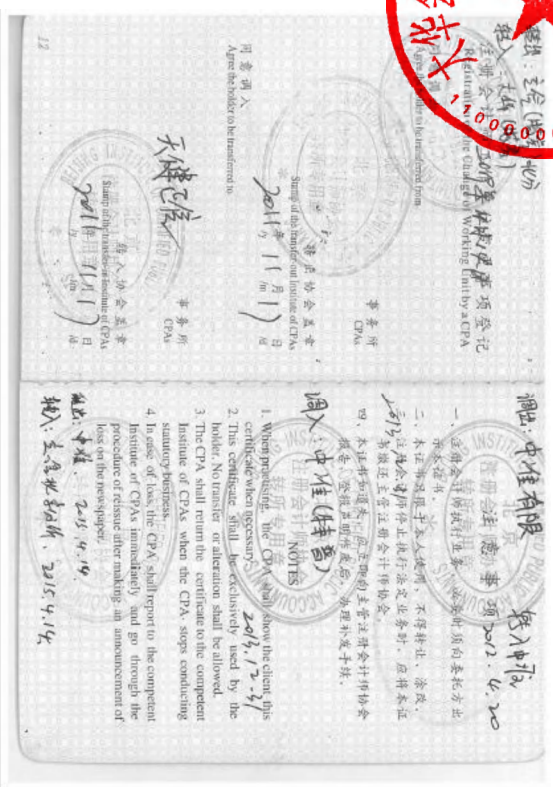 转出：立信(特普)北分
转入 大华(特普)
注册会计师工作单位变更事项登记
Registration of the Change of Working Unit by a CPA
同意调出
Agree the holder to be transferred from
事务所
CPAs
转出协会盖章
Stamp of the transfer-out Institute of CPAs
2011年 11月 1日
/y /m /d
同意调入
Agree the holder to be transferred to
天健正信
事务所
CPAs
转入协会盖章
Stamp of the transfer-in Institute of CPAs
2011年 11月 1日
/y /m /d
12
大华会
110000
调出：中准有限
转入中准
2012.4.20
注意事项
一、注册会计师执行业务，必要时须向委托方出示本证书。
二、本证书只限于本人使用，不得转让、涂改。
三、注册会计师停止执行法定业务时，应将本证书缴还主管注册会计师协会。
四、本证书如遗失，应立即向主管注册会计师协会报告，登报声明作废后，办理补发手续。
调入：中准(特普)
2013.12.31
NOTES
1. When practising, the CPA shall show the client this
certificate when necessary.
2. This certificate shall be exclusively used by the
holder. No transfer or alteration shall be allowed.
3. The CPA shall return the certificate to the competent
Institute of CPAs when the CPA stops conducting
statutory business.
4. In case of loss, the CPA shall report to the competent
Institute of CPAs immediately and go through the
procedure of reissue after making an announcement of
loss on the newspaper.
转出：中准 2015.4.14
转入：立信北京分所 2015.4.14